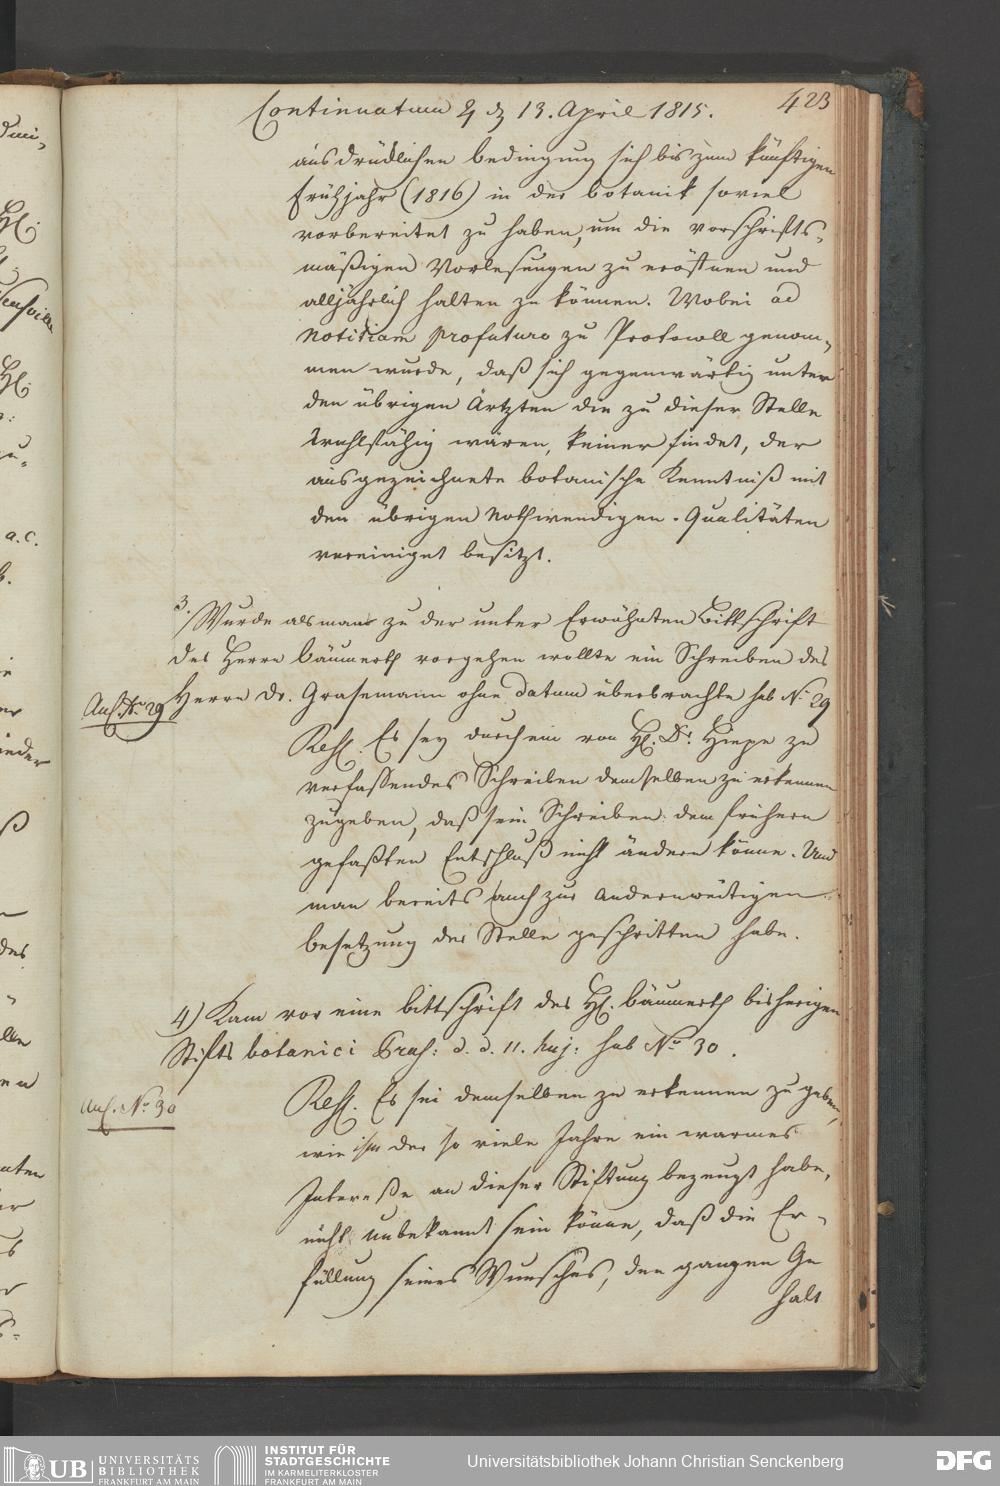 423
Continuatum ♃ d 13. April 1815.
ausdrücklichen bedingung sich bis zum künftigen
Frühjahr (1816) in der botanik soviel
vorbereitet zu haben, um die vorschrifts-
mäßigen Vorlesungen zu eröffnen und
alljährlich halten zu können. Wobei ad
notitiam profuturo zu Protocoll genom-
men wurde, daß sich gegenwärtig unter
den übrigen Ärtzten die zu dieser Stelle
wahlfähig wären, keiner findet, der
ausgezeichnete botanische Kenntniß mit
den übrigen nothwendigen Qualitäten
vereiniget besitzt.
3. Wurde als man zu der unter Erwähnten Bittschrift
des Herrn Bäumerth vorgehen wollte ein Schreiben des
Herrn Dr. Grasemann ohne datum überbrachte sub No 29
Anl. No 29
Resl. Es sey durch ein von H. Dr. Hiepe zu
verfassendes Schreiben demselben zu erkennen
zugeben, daß sein Schreiben dem frühern
gefaßten Entschluß nicht ändern könne. Und
man bereits auch zur anderweitigen
besetzung der Stelle geschritten habe.
4) Kam vor eine bittschrift des H. Bäumerth bisherigen
Stifts botanici Præs: d. d. 11. huj: sub No 30.
Anl. No 30
Resl. Es sei demselben zu erkennen zu geben,
wie ihm der so viele Jahre ein warmes
Interesse an dieser Stiftung bezeugt habe,
nicht unbekannt sein könne, daß die Er-
füllung seines Wunsches, den ganzen Ge
halt
a.c.
des
UB UNIVERSITÄTS
BIBLIOTHEK
FRANKFURT AM MAIN
INSTITUT FÜR
STADTGESCHICHTE
IM KARMELITERKLOSTER
FRANKFURT AM MAIN
Universitätsbibliothek Johann Christian Senckenberg
DFG